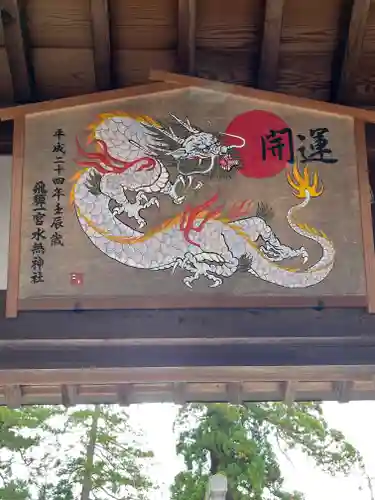 開運
平成二十四年壬辰歳
飛驒一宮水無神社